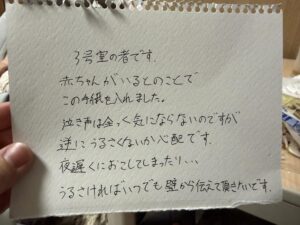 3号室の者です。
赤ちゃんがいるとのことで
この手紙を入れました。
泣き声は全く気にならないのですが
逆にうるさくないか心配です。
夜遅くにおこしてしまったり...
うるさければいつでも壁から伝えて頂きたいです。